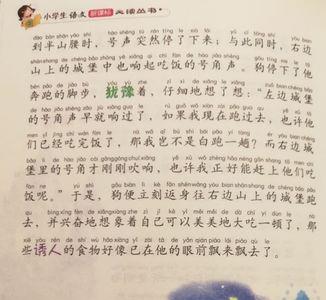 小学生语文新课标必读丛书
到半山腰时，号声突然停了下来；与此同时，右边
山上的城堡中也响起吃饭的号角声。狗停下了他
奔跑的脚步，犹豫着，仔细地想了想：“左边城堡
的号角声早就响过了，如果我现在跑过去，也许他
们已经吃完饭了，那我岂不是白跑一趟？而右边城
堡里的号角才刚刚吹响，也许我正好能赶上他们吃
饭呢。”于是，狗便立刻返身往右边山上的城堡跑
去，并兴奋地想象着自己可以美美地大吃一顿了，那
些诱人的食物好像已在他的眼前飘来飘去了。